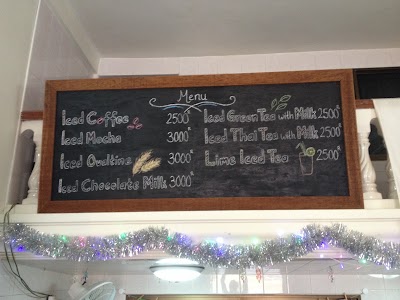 Menu
Iced Coffee 2500k
Iced Mocha 3000k
Iced Ovaltine 3000k
Iced Chocolate Milk 3000k
Iced Green Tea with Milk 2500k
Iced Thai Tea with Milk 2500k
Lime Iced Tea 2500k